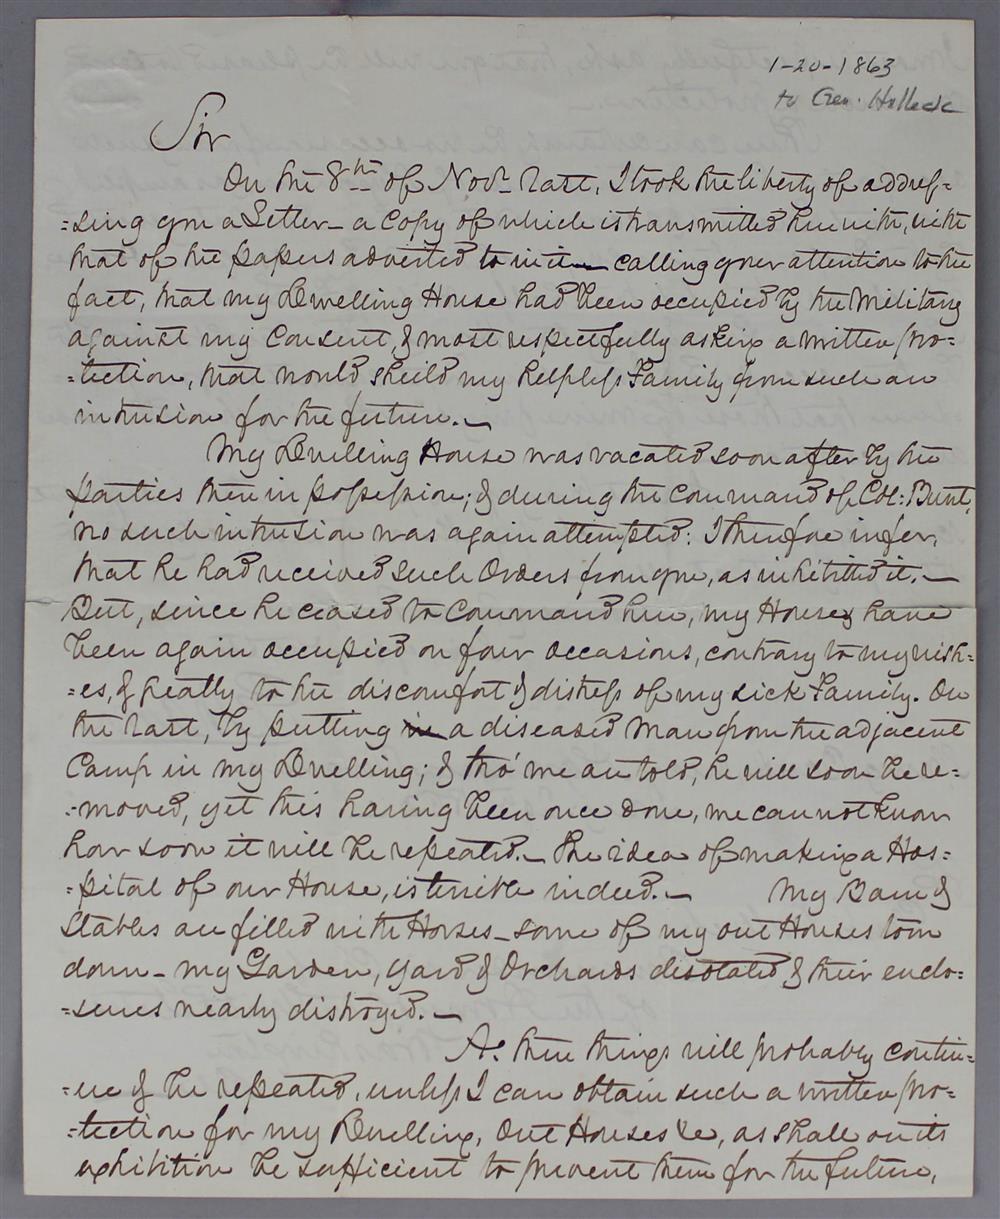 1-20-1863
to Gen. Halleck
Sir
On the 8th of Novr last, I took the liberty of addres-
=sing you a Letter - a Copy of which is transmitted herewith, with
that of the papers adverted to in it - calling your attention to the
fact, that my Dwelling House had been occupied by the Military
against my Consent, & most respectfully asking a written pro-
=tection, that would sheild my helpless Family from such an
intrusion for the future. -
My Dwelling House was vacated soon after by the
parties then in possession; & during the command of Col: Burt,
no such intrusion was again attempted: I therefore infer,
that he had received such Orders from you, as inhibitted it. -
But, since he ceased to command here, my Houses have
been again occupied on four occasions, contrary to my wish-
=es, & greatly to the discomfort & distress of my sick Family. On
the last, by putting a diseased man from the adjacent
Camp in my Dwelling; & tho' we are told, he will soon be re-
=moved, yet this having been once done, we can not know
how soon it will be repeated. - The idea of making a Hos-
=pital of our House, is terrible indeed. - My Barn &
Stables are filled with Horses - some of my out Houses torn
down - my Garden, Yard & Orchards disolated & their enclo-
=sures nearly distroyed. -
As these things will probably contin-
=ue & be repeated, unless I can obtain such a written pro-
=tection for my Dwelling, Out Houses &c, as shall on its
exhibition be sufficient to prevent them for the future,